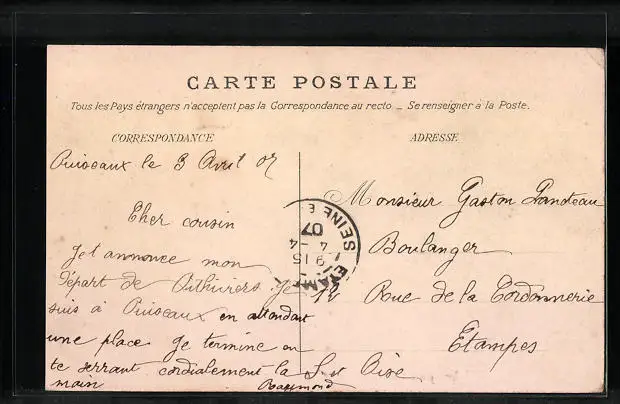 CARTE POSTALE
Tous les Pays étrangers n'acceptent pas la Correspondance au recto _ Se renseigner à la Poste.
CORRESPONDANCE
Puiseaux le 3 Avril 07
Cher cousin
Je t annonce mon
départ de Pithiviers. Je
suis à Puiseaux en attendant
une place Je termine en
te serrant cordialement la
main
Raymond
ADRESSE
Monsieur Gaston
Boulanger
14 Rue de la Cordonnerie
Etampes
S. et Oise
ETAMP
SEINE E
9 15
4 - 4
07